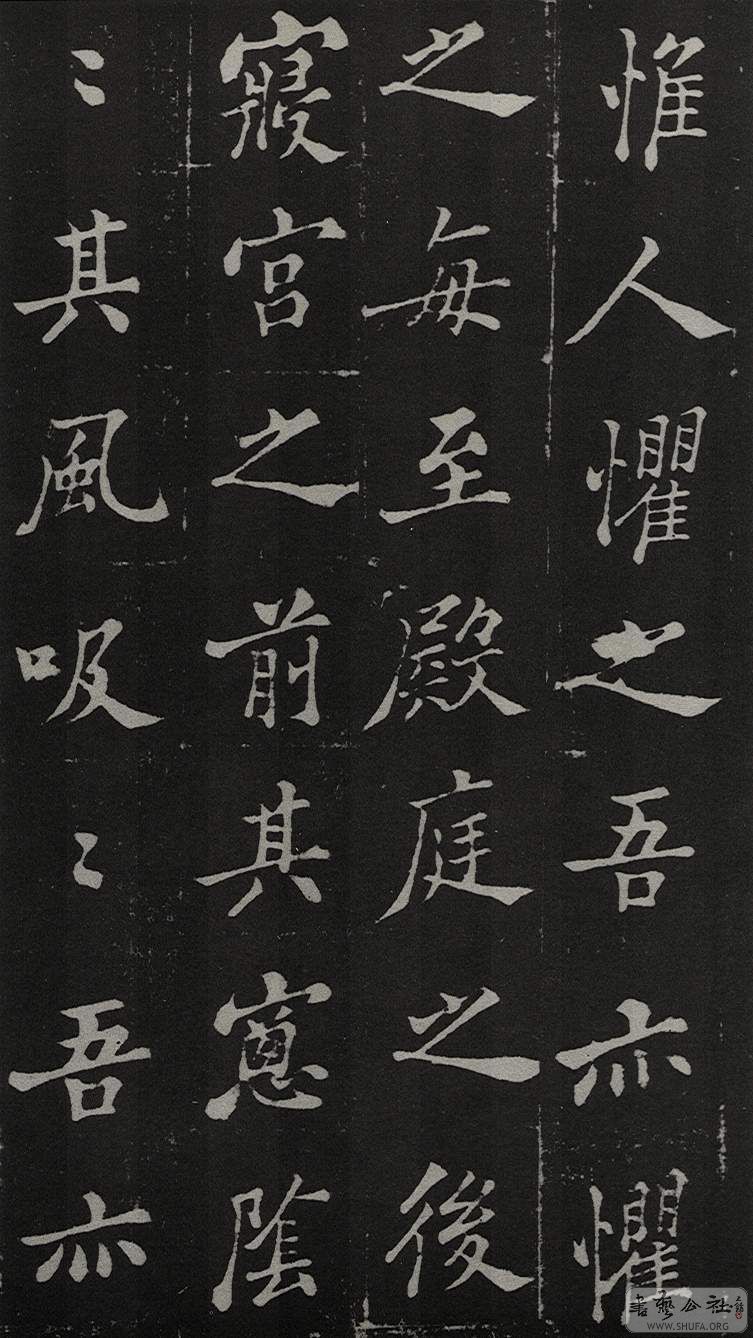 惟人懼之吾亦懼
之每至殿庭之後
寢宫之前其窻隂
〻其風吸〻吾亦
書藝公社
WWW.SHUFA.ORG